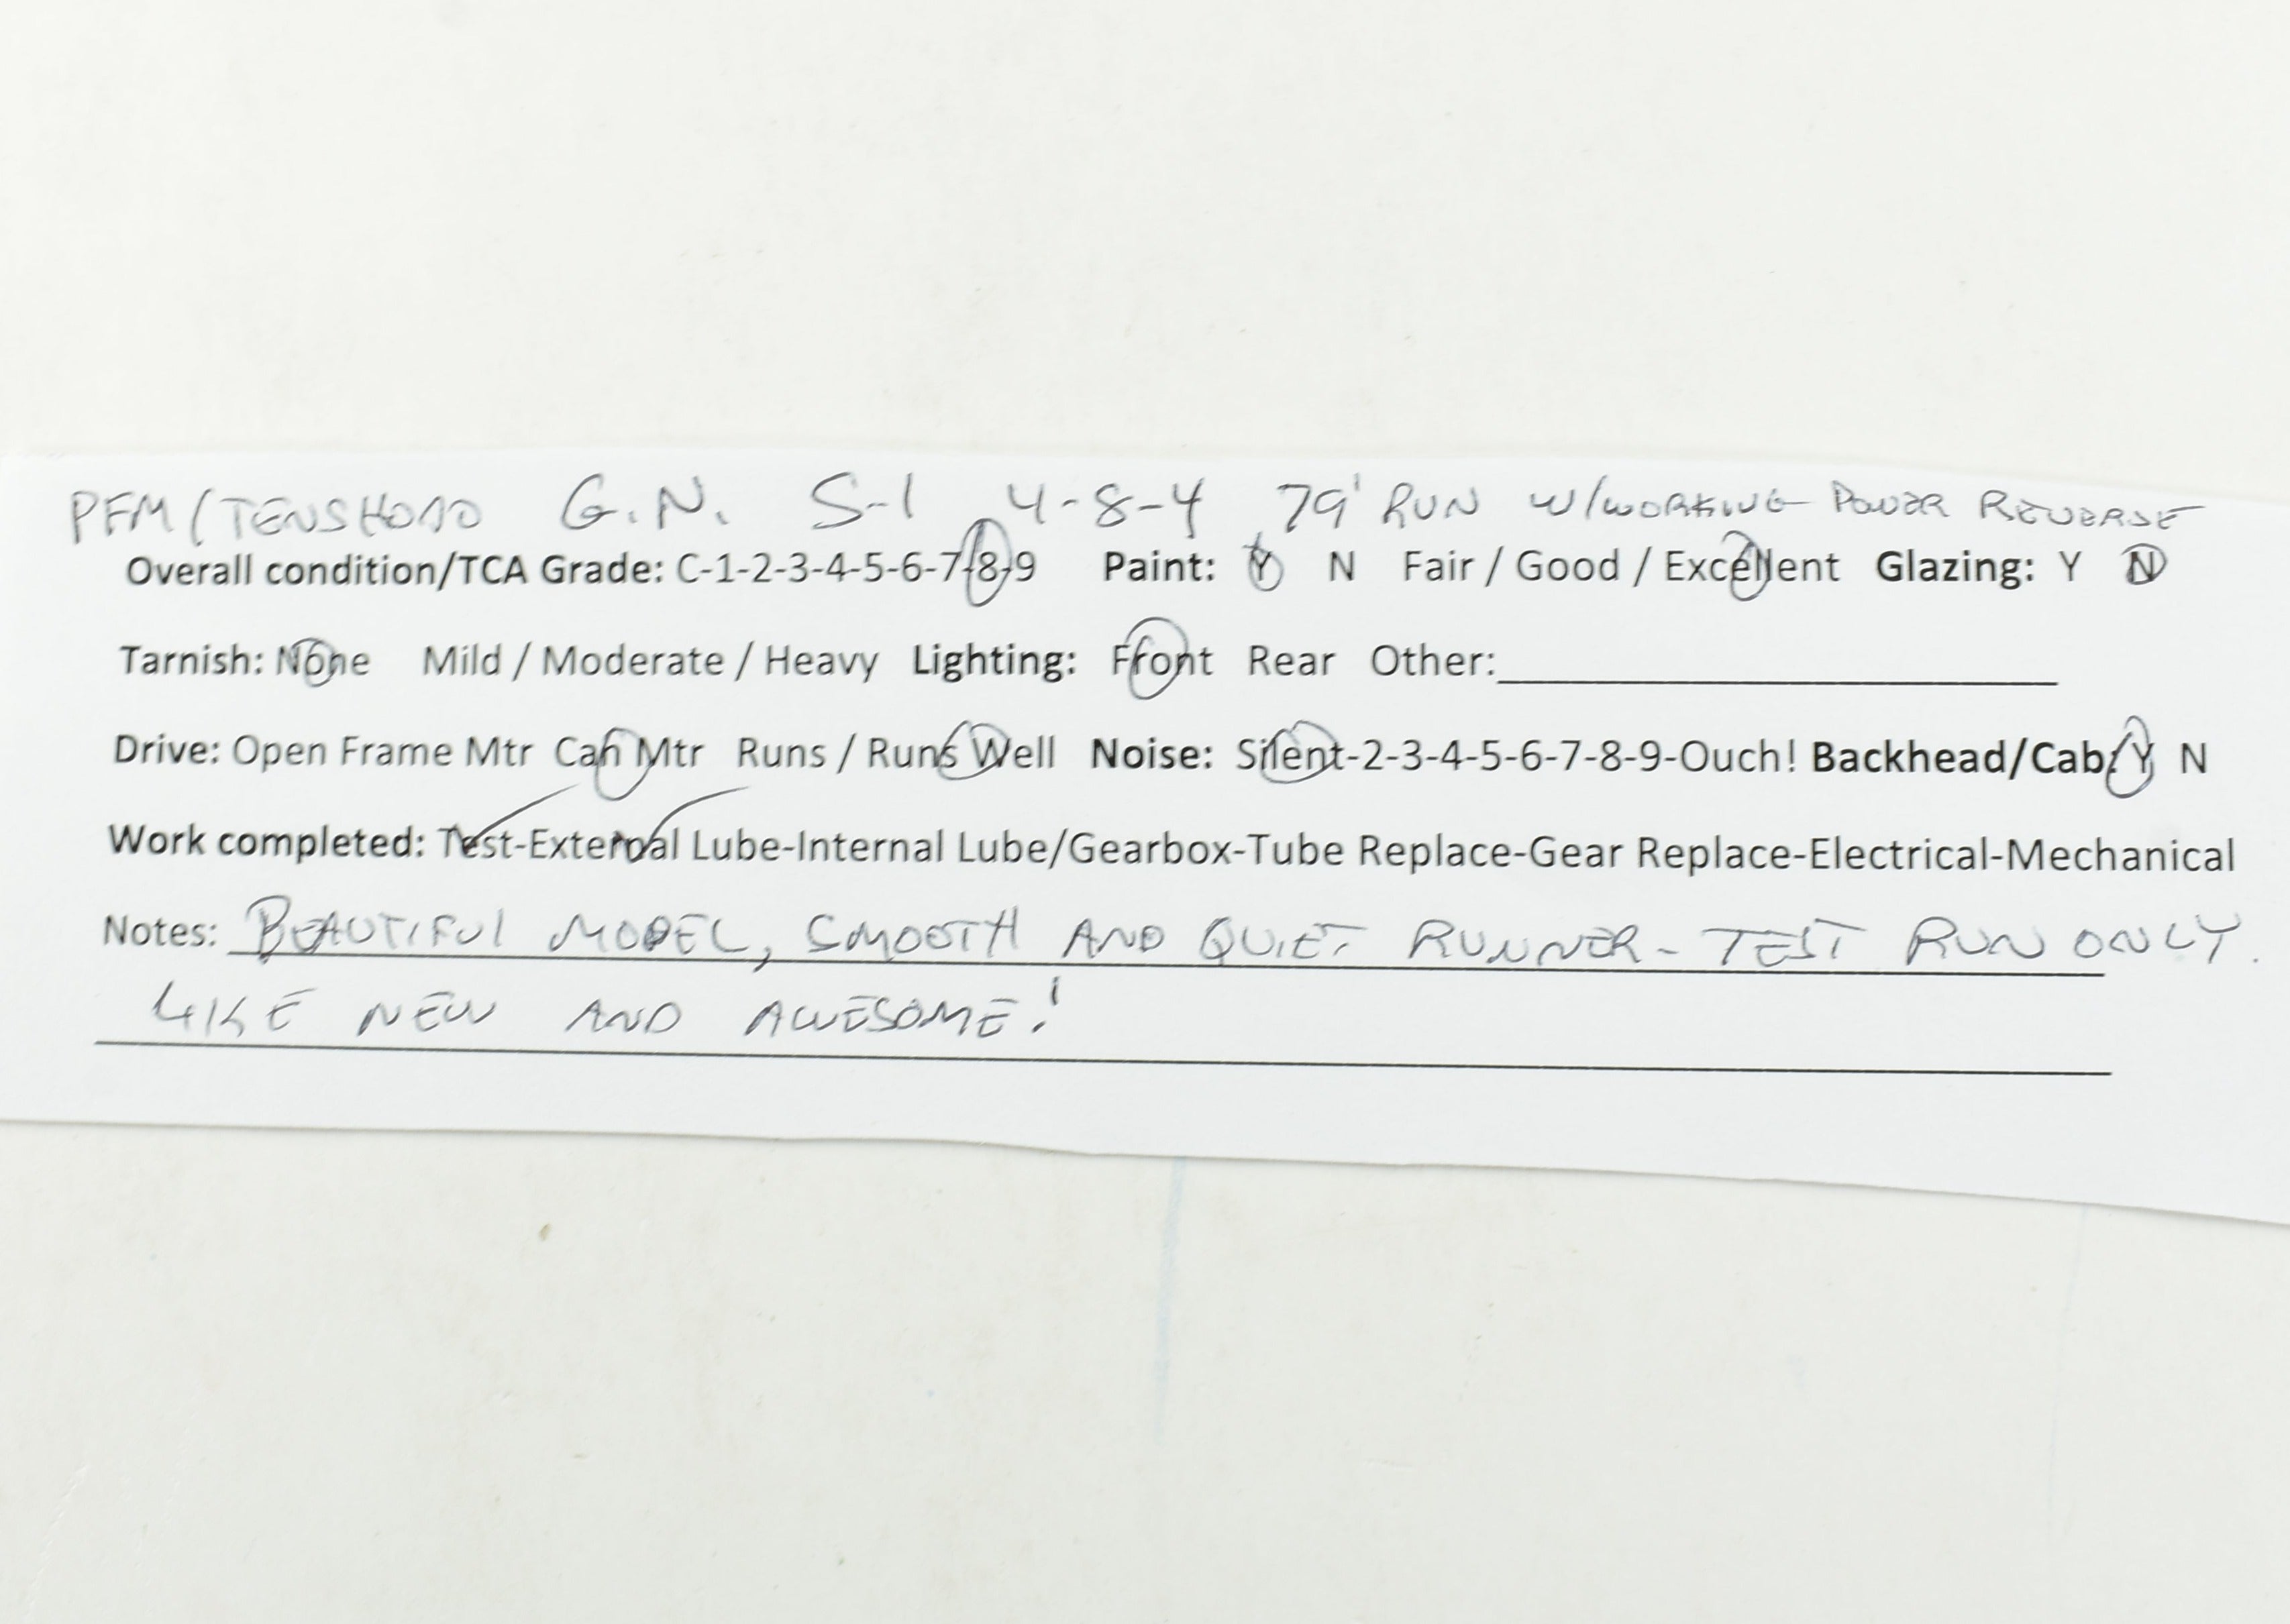 PFM/TENSHODO G.N. S-1 4-8-4 79' RUN W/WORKING POWER REVERSE
Overall condition/TCA Grade: C-1-2-3-4-5-6-7-8-9 Paint: Y N Fair / Good / Excellent Glazing: Y N
Tarnish: None Mild / Moderate / Heavy Lighting: Front Rear Other:
Drive: Open Frame Mtr Can Mtr Runs / Runs Well Noise: Silent-2-3-4-5-6-7-8-9-Ouch! Backhead/Cab: Y N
Work completed: Test-External Lube-Internal Lube/Gearbox-Tube Replace-Gear Replace-Electrical-Mechanical
Notes: BEAUTIFUL MODEL, SMOOTH AND QUIET RUNNER - TEST RUN ONLY.
LIKE NEW AND AWESOME!